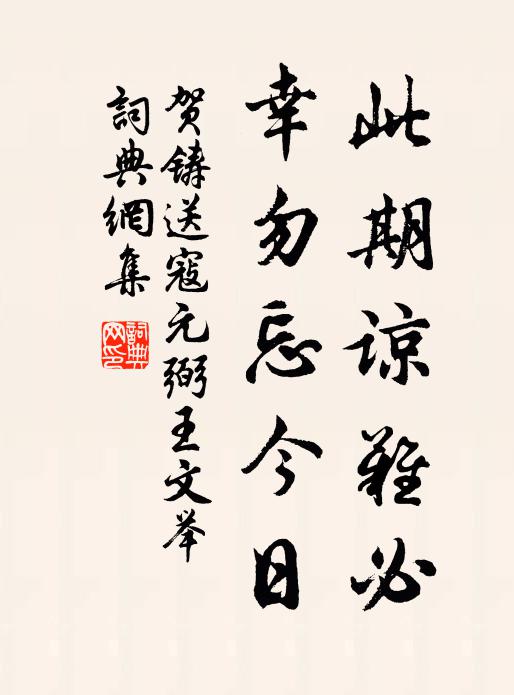 此期谅難必
幸勿忘今日
贺鑄送寇元弼王文举
詞典網集
詞典
网印